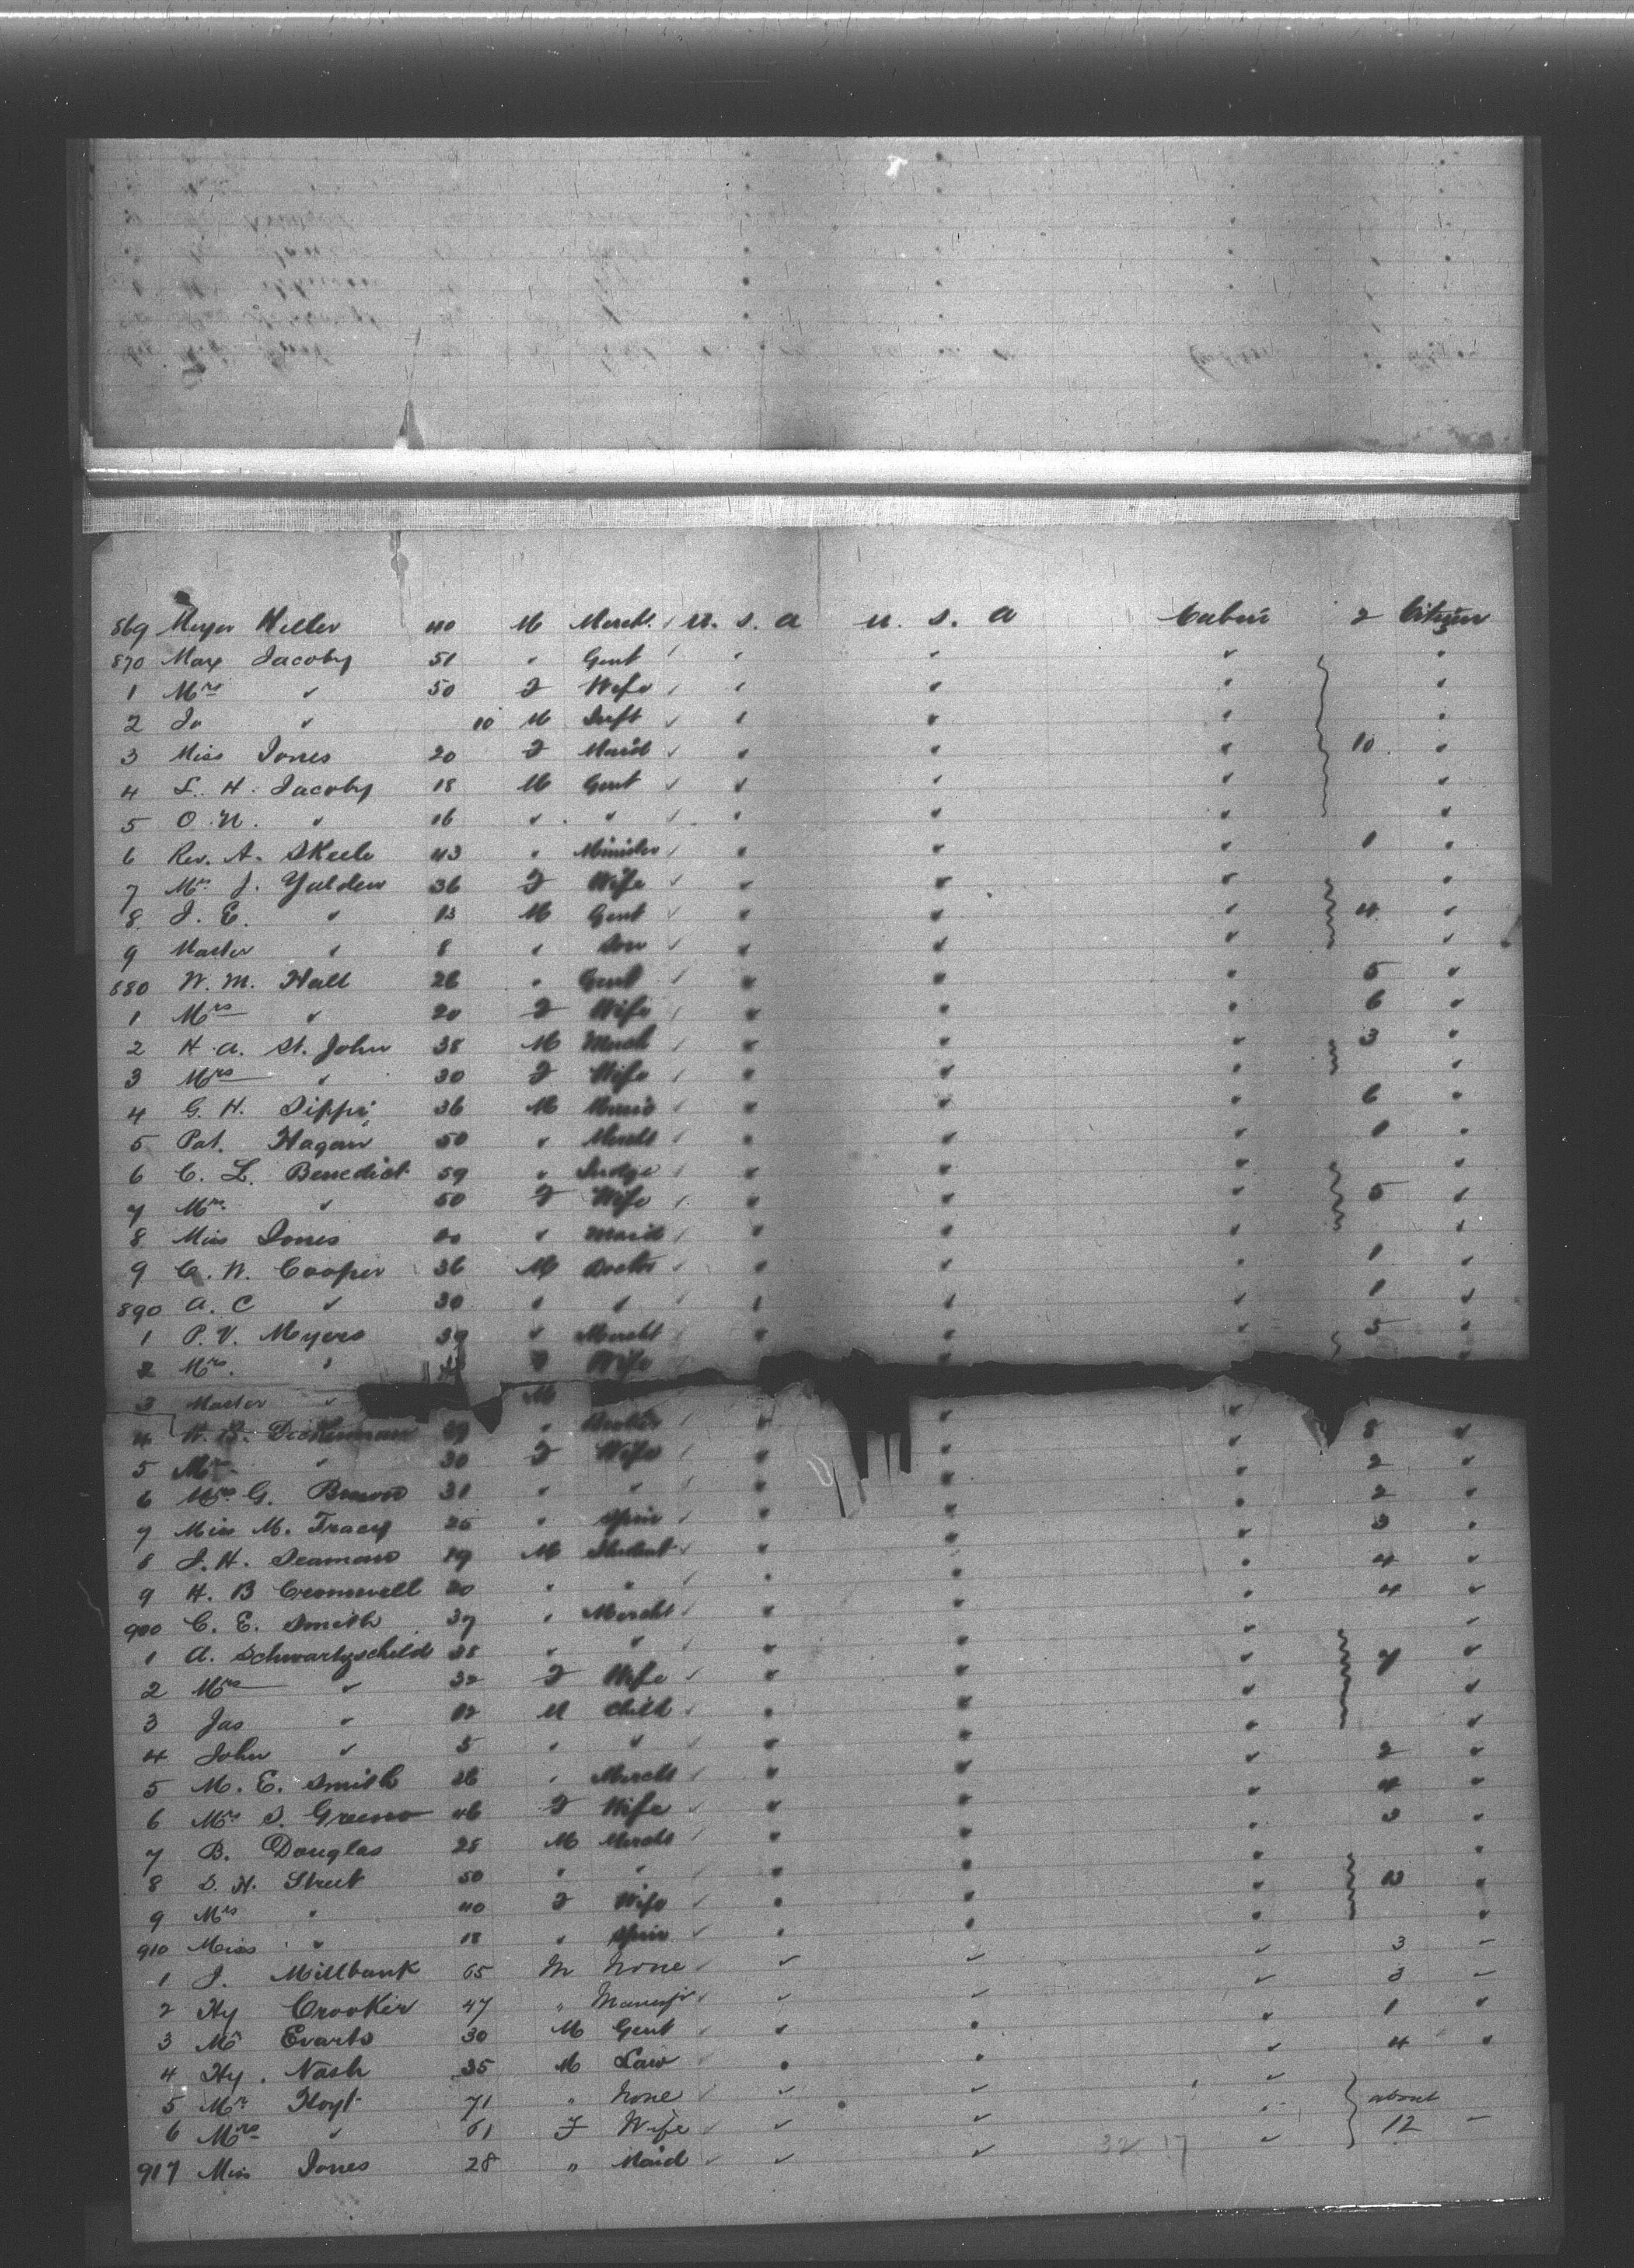 869 Meyer Heller 40 M Merch. U. S. A U. S. A Cabin 2 Citizen
870 Max Jacoby 51 " Gent
1 Mrs " 50 F Wife
2 " 10 M Inft
3 Miss Jones 20 F Maid 10
4 L. H. Jacoby 18 M Gent
5 O. N. " 16 " "
6 Rev. A. Skeele 43 " Minister 1
7 Mrs J. Yalden 36 F Wife
8 J. E. " 13 M Gent 4
9 Master " 8 " Son
880 W. M. Hall 26 " Gent 5
1 Mrs " 20 F Wife 6
2 H. A. St. John 38 M Merch 3
3 Mrs " 30 F Wife
4 G. H. 36 M 6
5 Pat. Hagan 50 " Mercht 1
6 C. L. Benedict 59 " Judge
7 Mrs " 50 F Wife 5
8 Miss Jones " Maid
9 C. W. Cooper 36 M Doctor 1
890 A. C " 30 " " 1
1 P. V. Myers 39 " Mercht 5
2 Mrs. " F Wife
3 Master " M
4 W. B. Dickerman 39 " 8
5 Mrs " 30 F Wife 2
6 Mrs G. Brown 31 " " 2
7 Miss M. Tracy 25 " Spin 3
8 J. H. Seaman 19 M Student 4
9 H. B Cromwell 20 " " 4
900 C. E. Smith 37 " Mercht
1 A. Schwartzschild 38 " "
2 Mrs " 32 F Wife 7
3 Jas " 12 M Child
4 John " 5 " "
5 M. E. Smith 26 " Mercht 2
6 Mrs S. Greene 46 F Wife 4
7 B. Douglas 28 M Mercht 3
8 S. H. Street 50 " "
9 Mrs " 40 F Wife 13
910 Miss " 18 " Spin
1 J. Millbank 65 M None 3
2 Hy Crooker 47 " Manufr 3
3 Mr Evarts 30 M Gent 1
4 Hy. Nash 35 M Law 4
5 Mr Hoyt 71 " None about
6 Mrs " 61 F Wife 12
917 Miss Jones 28 " Maid 32 17